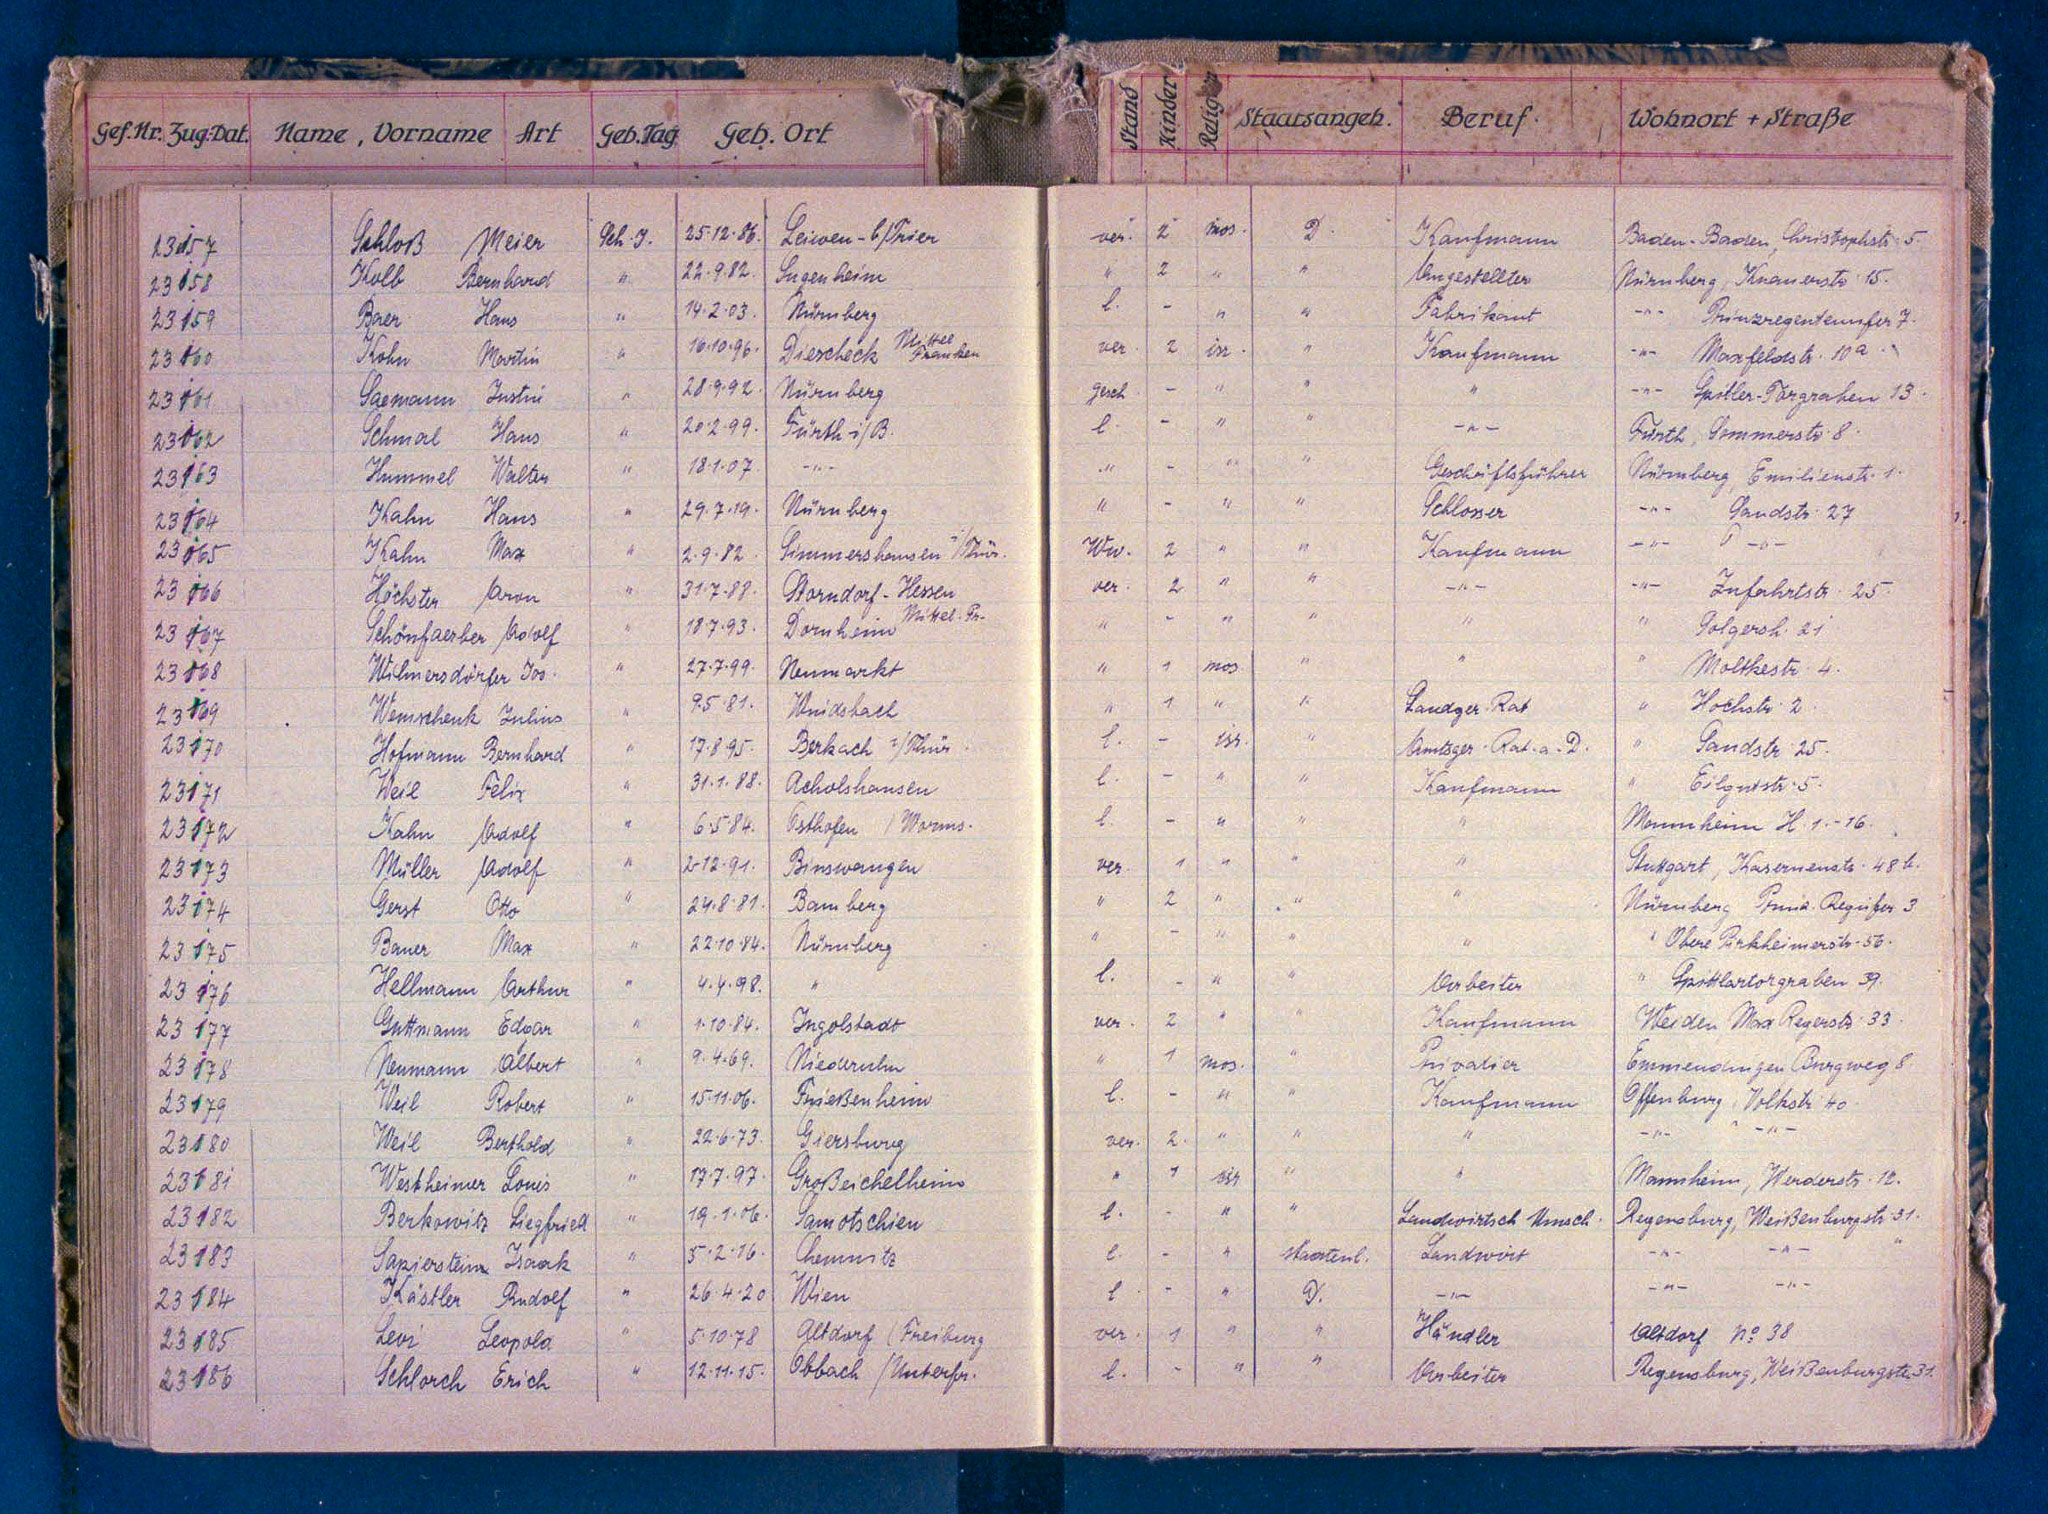 Gef.Nr. Zug.Dat. Name, Vorname Art Geb.Tag Geb. Ort Stand Kinder Religion Staatsangeh. Beruf. Wohnort + Straße
23157 Schloß Meier Sch. J. 25.12.86. Leiwen - b/Trier ver. 2 mos. D. Kaufmann Baden-Baden, Christophstr. 5.
23158 Kolb Bernhard " 22.9.82. Sugenheim " 2 " " Angestellter Nürnberg, Knauerstr. 15.
23159 Baer Hans " 14.2.03. Nürnberg l. - " " Fabrikant -"- Prinzregentenufer 7.
23160 Kohn Martin " 16.10.96. Diescheck Mittel Franken ver. 2 isr. " Kaufmann -"- Maxfeldstr. 10a.
23161 Saemann Justin " 28.9.92. Nürnberg gesch. - " " " -"- Spitler-Torgraben 13.
23162 Schmal Hans " 20.2.99. Fürth i/B. l. - " " -"- Fürth, Sommerstr. 8.
23163 Hummel Walter " 18.1.07. -"- " - " " Geschäftsführer Nürnberg, Emilienstr. 1.
23164 Kahn Hans " 29.7.19. Nürnberg " - " " Schlosser -"- Sandstr. 27
23165 Kahn Max " 2.9.82. Simmershausen i/Thür. Ww. 2 " " Kaufmann -"- -"-
23166 Höchster Aron " 31.7.88. Storndorf - Hessen ver. 2 " " -"- -"- Zufahrtstr. 25.
23167 Schönfaerber Adolf " 18.7.93. Dornheim Mittel-Fr. " - " " " " 21
23168 Wilmersdörfer Jos. " 27.7.99. Neumarkt " 1 mos. " " " Moltkestr. 4.
23169 Wemschenk Julius " 9.5.81. Windsbach " 1 " " Landger. Rat " Hochstr. 2.
23170 Hofmann Bernhard " 17.8.95. Berkach i/Thür. l. - isr. " Amtsger. Rat. a. D. " Sandstr. 25.
23171 Weil Felix " 31.1.88. Acholshausen l. - " " Kaufmann " Eilgutstr. 5.
23172 Kahn Adolf " 6.5.84. Osthofen / Worms. l. - " " " Mannheim H. 1. - 16.
23173 Müller Adolf " 2.12.91. Binswangen ver. 1 " " " Stuttgart, Kasernenstr. 48 b.
23174 Gerst Otto " 24.8.81. Bamberg " 2 " " " Nürnberg Prinz. Regufer 3
23175 Bauer Max " 22.10.84. Nürnberg " - " " " " Obere Pirkheimerstr. 56.
23176 Hellmann Arthur " 4.4.98. " l. - " " Arbeiter " Spittlertorgraben 39.
23177 Guttmann Edgar " 1.10.84. Ingolstadt ver. 2 " " Kaufmann Weiden, Max Regerstr. 33.
23178 Neumann Albert " 9.4.69. Niederuhn " 1 mos. " Privatier Emmendingen Burgweg 8.
23179 Weil Robert " 15.11.06. Frießenheim l. - " " Kaufmann Offenburg, Volkstr. 40.
23180 Weil Berthold " 22.6.73. Giersburg ver. 2. " " " -"- -"-
23181 Westheimer Louis " 17.7.97. Großeichelheim " 1 isr " " Mannheim, Werderstr. 12.
23182 Berkowitz Siegfried " 19.1.06. Samotschien l. - " " Landwirtsch Umsch. Regensburg, Weißenburgstr. 31.
23183 Sapierstein Isaak " 5.2.16. Chemnitz l. - " staatenl. Landwirt -"- -"- "
23184 Kästler Rudolf " 26.4.20 Wien l - " D. -"- -"- -"-
23185 Levi Leopold " 5.10.78 Altdorf / Freiburg ver. 1 " " Händler Altdorf No 38
23186 Schlorch Erich " 12.11.15. Obbach / Unterfr. l. - " " Arbeiter Regensburg, Weißenburgstr. 31.